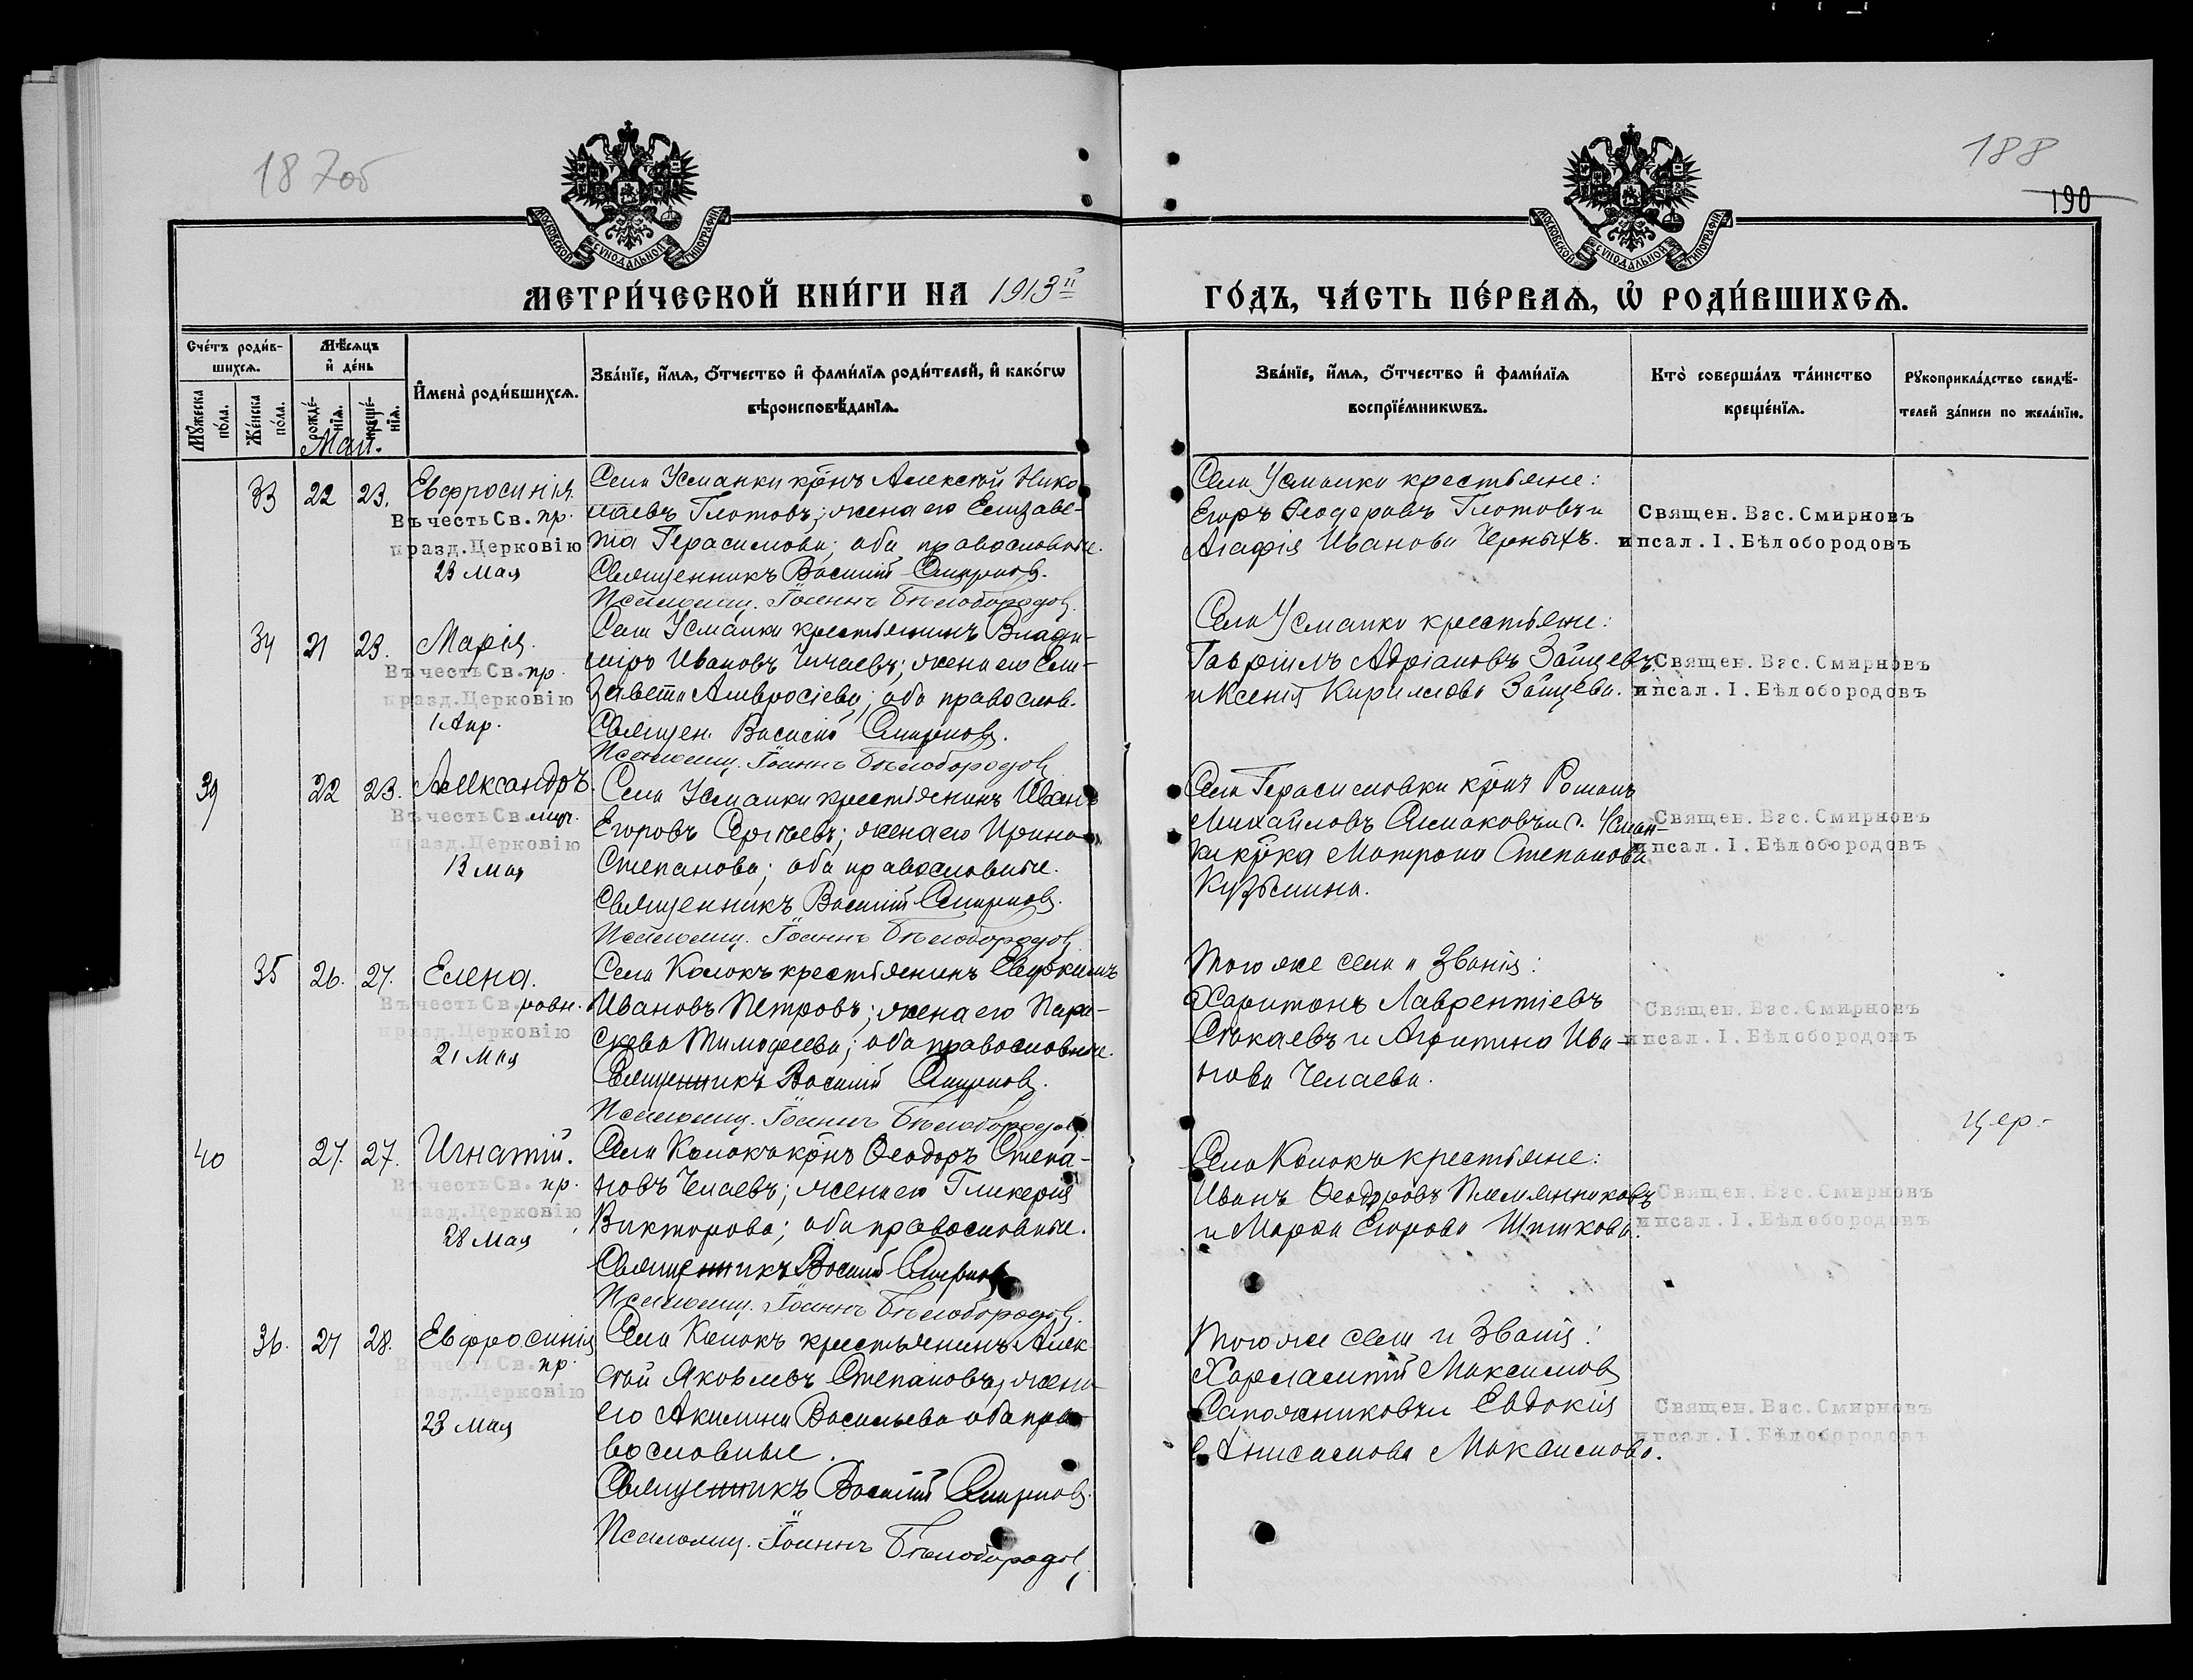 187об
188
190
МОСКОВСКОЙ СѴНОДАЛЬНОЙ ТИПОГРАФІИ
МОСКОВСКОЙ СѴНОДАЛЬНОЙ ТИПОГРАФІИ
МЕТРИ́ЧЕСКОЙ КНИ́ГИ НА 1913й
ГО́ДЪ, ЧА́СТЬ ПЕ́РВАѦ, Ѡ РОДИ́ВШИХСѦ.
Сче́тъ роди́в-
шихсѧ.
Мѣ́сѧцъ
и҆ де́нь
Мꙋ́жеска
по́ла.
Же́нска
по́ла.
рожде́-
нїѧ.
креще́-
нїѧ.
И҆мена̀ роди́вшихсѧ.
Зва́нїе, и҆́мѧ, ѻ҆́тчество и҆ фами́лїѧ роди́телей, и҆ како́гѡ
вѣроисповѣ́данїѧ.
Зва́нїе, и҆́мѧ, ѻ҆́тчество и҆ фами́лїѧ
воспрїе́мникѡвъ.
Кто̀ соверша́лъ та́инство
креще́нїѧ.
Рꙋкоприкла́дство свидѣ́-
телей за́писи по жела́нїю.
Май.
33 22 23. Евфросинія.
Въ честь Св. пр.
празд. Церковію
23 Мая
Села Усманки крнъ Алексѣй Нико
лаевъ Глотовъ; жена его Елизаве-
та Герасимова; оба православные.
Священникъ Василій Смирновъ.
Псаломщ. Іоаннъ Бѣлобородовъ.
Села Усманки крестьяне:
Егоръ Ѳеодоровъ Глотовъ и
Агафія Иванова Черныхъ.
Священ. Вас. Смирновъ
и псал. І. Бѣлобородовъ
34 21 23. Марія.
Въ честь Св. пр.
празд. Церковію
1 Апр.
Села Усманки крестьянинъ Влади-
міръ Ивановъ Чичаевъ; жена его Ели-
завета Амвросіева; оба правосл.
Священ. Василій Смирновъ.
Псаломщ. Іоаннъ Бѣлобородовъ
Села Усманки крестьяне:
Гавріилъ Адріановъ Зайцевъ
и Ксенія Кириллова Зайцева.
Священ. Вас. Смирновъ
и псал. І. Бѣлобородовъ
39 22 23. Александръ.
Въ честь Св. муч.
празд. Церковію
13 Мая
Села Усманки крестьянинъ Иванъ
Егоровъ Сергѣевъ; жена его Ирина
Степанова; оба православные.
Священникъ Василій Смирновъ.
Псаломщ. Іоаннъ Бѣлобородовъ
Села Герасимовки крнъ Романъ
Михайловъ и с. Усман-
ки крка Матрона Степанова
Кузьмина.
Священ. Вас. Смирновъ
и псал. І. Бѣлобородовъ
35 26. 27. Елена.
Въ честь Св. равн.
празд. Церковію
21 Мая
Села Колокъ крестьянинъ Евдокимъ
Ивановъ Петровъ; жена его Пара-
скева Тимофеева; оба православные.
Священникъ Василій Смирновъ.
Псаломщ. Іоаннъ Бѣлобородовъ
Того же села и званія:
Харитонъ Лаврентіевъ
и Агрипина Ива-
нова Челаева.
Священ. Вас. Смирновъ
и псал. І. Бѣлобородовъ
цер.-
40 27. 27. Игнатій.
Въ честь Св. пр.
празд. Церковію
28 Мая
Села Колокъ крнъ Ѳеодоръ Степа-
новъ Челаевъ; жена его Гликерія
Викторова; оба православные.
Священникъ Василій Смирновъ
Псаломщ. Іоаннъ Бѣлобородовъ.
Села Колокъ крестьяне:
Иванъ Ѳеодоровъ Племянниковъ
и Марѳа Егорова
Священ. Вас. Смирновъ
и псал. І. Бѣлобородовъ
36. 27 28. Евфросинія
Въ честь Св. пр.
празд. Церковію
23 Мая
Села Колокъ крестьянинъ Алек
сѣй Яковлевъ Степановъ, жена
его Акилина Васильева оба пра
вославные.
Священникъ Василій Смирновъ.
Псаломщ. Іоаннъ Бѣлобородовъ
Того же села и званія:
Харлампій Максимовъ
Сапожниковъ и Евдокія
Анисимова Максимова.
Священ. Вас. Смирновъ
и псал. І. Бѣлобородовъ